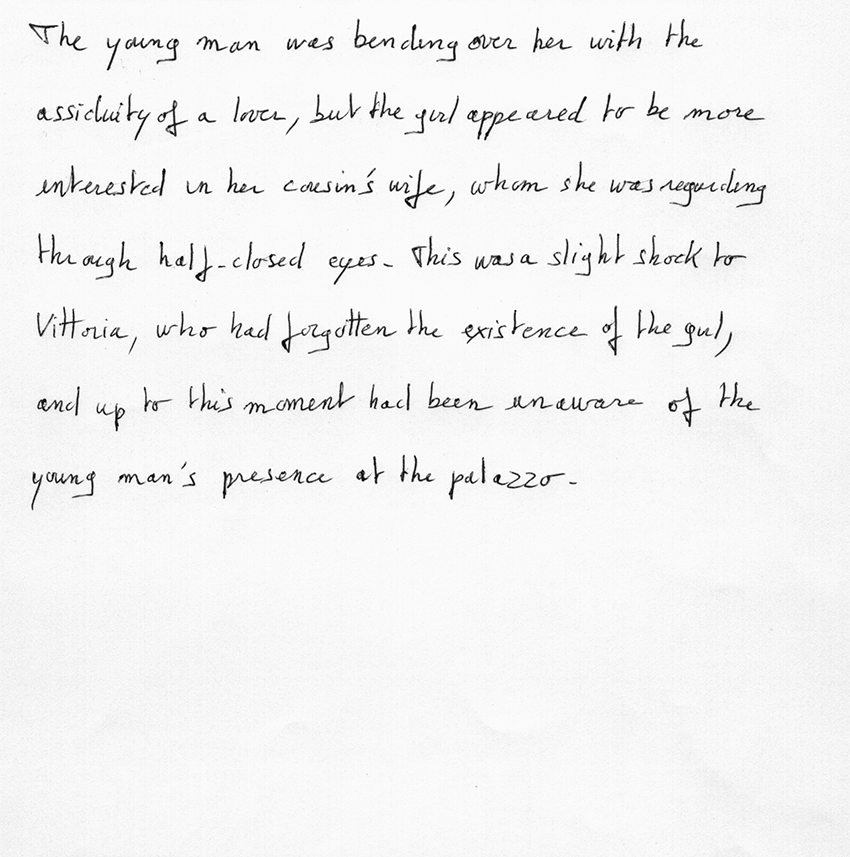 The young man was bending over her with the
assiduity of a lover, but the girl appeared to be more
interested in her cousin's wife, whom she was regarding
through half-closed eyes. This was a slight shock to
Vittoria, who had forgotten the existence of the girl,
and up to this moment had been unaware of the
young man's presence at the palazzo.